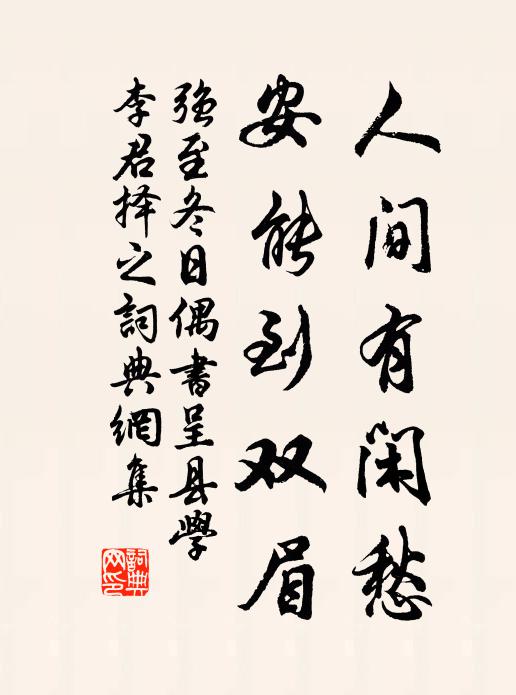 人间有闲愁
安能到双眉
强至冬日偶書呈县學
李君择之詞典網集
詞典
网印